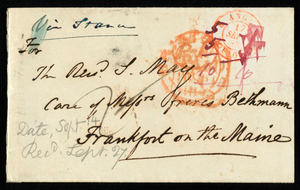 For
The Revd. S. May
Care of Messrs freres Bethmann
Frankfort on the Maine
Date, Sept 14
Recd. Sept. 27